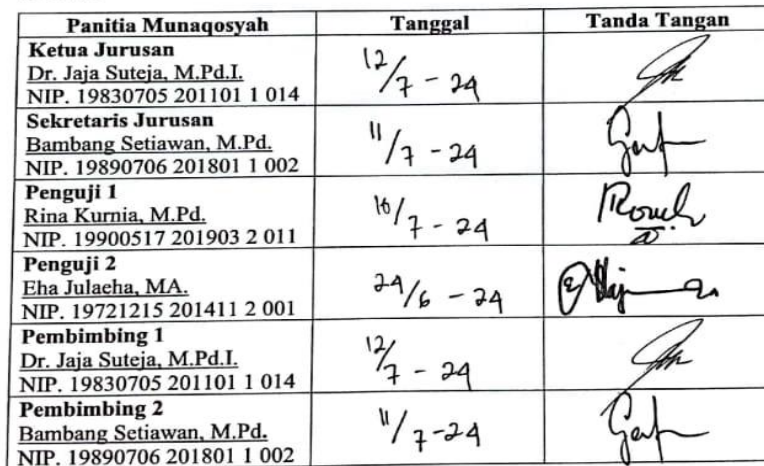 Panitia Munaqosyah Tanggal Tanda Tangan
Ketua Jurusan
Dr. Jaja Suteja, M.Pd.I.
NIP. 19830705 201101 1 014
12/7 - 24
Sekretaris Jurusan
Bambang Setiawan, M.Pd.
NIP. 19890706 201801 1 002
11/7 - 24
Penguji 1
Rina Kurnia, M.Pd.
NIP. 19900517 201903 2 011
10/7 - 24
Penguji 2
Eha Julaeha, MA.
NIP. 19721215 201411 2 001
24/6 - 24
Pembimbing 1
Dr. Jaja Suteja, M.Pd.I.
NIP. 19830705 201101 1 014
12/7 - 24
Pembimbing 2
Bambang Setiawan, M.Pd.
NIP. 19890706 201801 1 002
11/7-24